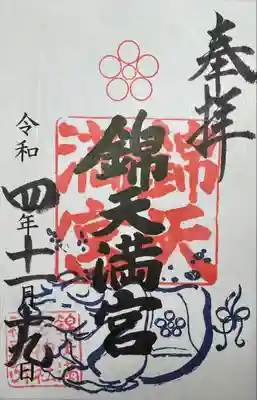 奉拝
錦天満宮
錦天
満宮
令和四年十一月十九日